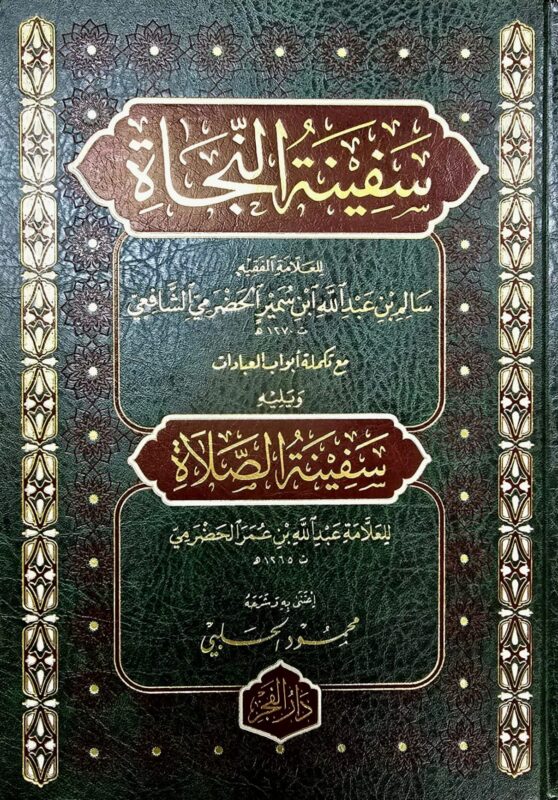 سَفِينَةُ النَّجَاةِ
لِلعَلَّامَةِ الفَقِيْهِ
سَالِمِ بْنِ عَبْدِ اللهِ ابْنِ سُمَيْرٍ الحَضْرَمِيِّ الشَّافِعِيِّ
ت ١٢٧٠ هـ
مع تكملة أبواب العبادات
وَيَلِيْهِ
سَفِيْنَةُ الصَّلَاةِ
لِلعَلَّامَةِ عَبْدِ اللهِ بْنِ عُمَرَ الحَضْرَمِيِّ
ت ١٢٦٥ هـ
اعْتَنَى بِهِ وَشَرَحَهُ
محمود الحلبي
دَارُ الفَجْرِ